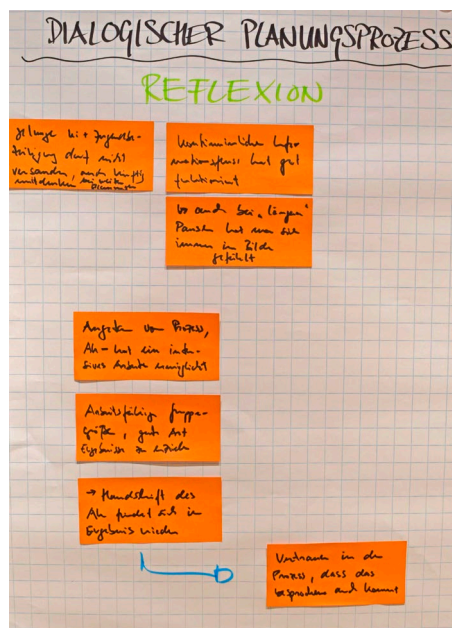 DIALOGISCHER PLANUNGSPROZESS
REFLEXION
gelungene Ki + Jugendbe-
teiligung darf nicht
versanden, auch künftig
mitdenken bei weiteren
Kontinuierlicher Infor
mationsfluss hat gut
funktioniert
so auch bei „langen"
Pausen hat man sich
immer im Bilde
gefühlt
vom Prozess,
AK - hat ein inten-
sives Arbeiten ermöglicht
Arbeitsfähige Gruppen-
größe, gute Art
Ergebnisse zu erzielen
→ Handschrift des
AK findet sich im
Ergebnis wieder
Vertrauen in den
Prozess, dass das
besprochene auch kommt